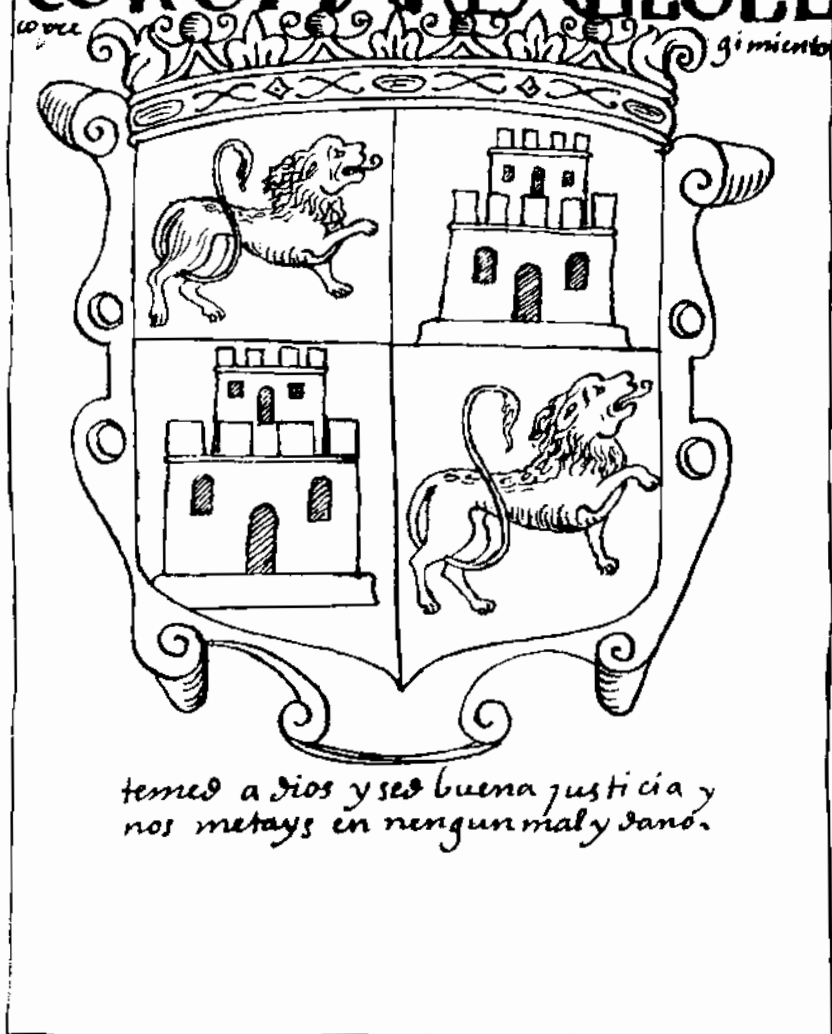 corre
gimiento
temed a dios y sed buena justicia y
nos metays en nengun mal y dano.